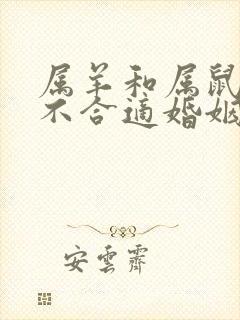 属羊和属鼠
不合适婚姻
安雲霽